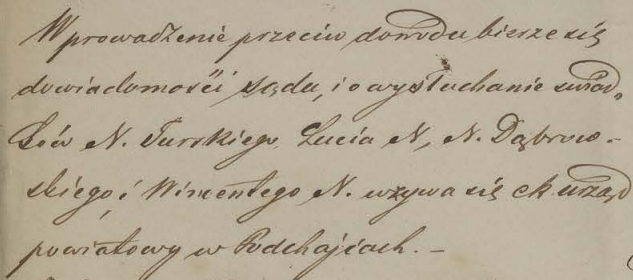 Wprowadzenie przeciw dowodu bierze się
do wiadomości sądu, i o wysłuchanie świad-
ków N. Turskiego, Lucia N, N. Dąbrow-
skiego i Wincentego N. wzywa się ck urząd
powiatowy w Podhajcach. –